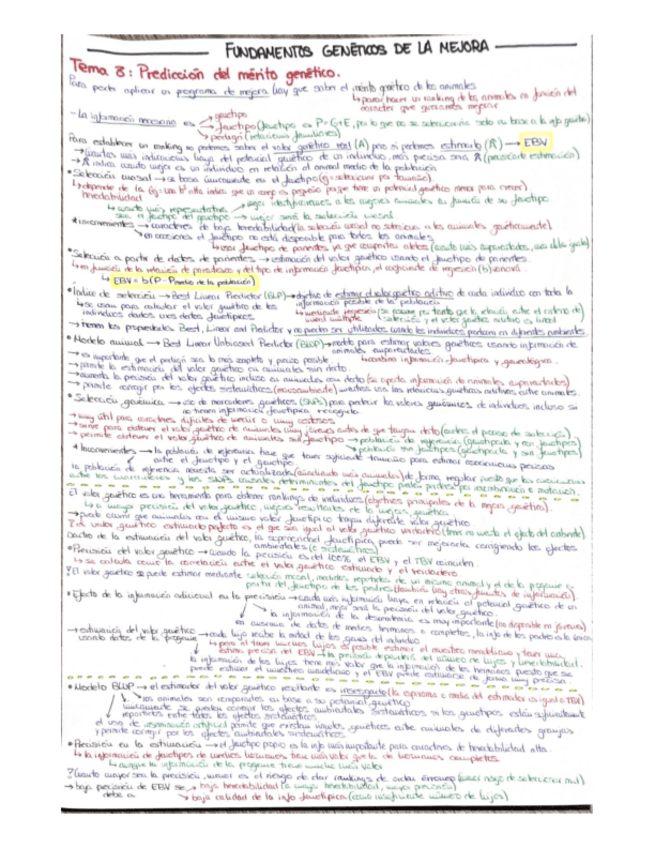 FUNDAMENTOS GENÉTICOS DE LA MEJORA
Tema 8: Predicción del mérito genético.
Para poder aplicar un programa de mejora hay que saber el mérito genético de los animales
↳ para hacer un ranking de los animales en función del
carácter que queramos mejorar
- La información necesaria es → genotipo
→ fenotipo (fenotipo es P=G+E, por lo que no se selecciona solo en base a la info fenot)
→ pedigrí (relaciones familiares)
Para establecer un ranking no podemos saber el valor genético real (A) pero sí podemos estimarlo (Â) → EBV
→ cuantas más indicaciones haya del potencial genético de un individuo, más precisa será Â
→ Â indica cuanto mejor es un individuo en relación al animal medio de la población
• Selección masal → se basa únicamente en el fenotipo
↳ depende de la
heredabilidad
→ mejor identificaremos a los mejores animales en función de su fenotipo
será el fenotipo del genotipo → mejor será la selección masal
* Inconvenientes → caracteres de baja heredabilidad (la selección masal no selecciona a los animales genéticamente)
→ en ocasiones el fenotipo no está disponible para todos los animales
• Selección a partir de datos de parientes → estimación del valor genético usando el fenotipo de parientes
↳ en función de la relación de parentesco y del tipo de información fenotípica, el coeficiente de regresión (b) variará
↳ EBV = b(P - Promedio de la población)
• Índice de selección → Best Linear Predictor (BLP) → objetivo de estimar el valor genético aditivo de cada individuo con toda la
información posible de la población
↳ se usan para calcular el valor genético de los
individuos
→ tienen las propiedades Best, Linear and Predictor y no pueden ser utilizados cuando los individuos producen en diferentes ambientes
• Modelo animal → Best Linear Unbiased Predictor (BLUP) → modelo para estimar valores genéticos usando información de
animales emparentados
→ es importante que el pedigrí sea lo más completo y preciso posible
↳ combina información fenotípica y genealógica
→ permite la estimación del valor genético en animales sin dato
→ aumenta la precisión del valor genético incluso en animales con dato (se aporta información de animales emparentados)
→ permite corregir por los efectos sistemáticos
• Selección genómica → uso de marcadores genéticos (SNPs) para predecir los valores genómicos de individuos incluso si
no tienen información fenotípica recogida
→ muy útil para caracteres difíciles de medir o muy costosos
→ sirve para obtener el valor genético de animales muy jóvenes antes de que tengan dato
→ permite obtener el valor genético de animales sin fenotipo → población de referencia (genotipada y con fenotipos)
→ población sin fenotipos (genotipada y sin fenotipos)
* Inconvenientes → la población de referencia tiene que tener suficiente tamaño para estimar asociaciones precisas
entre el fenotipo y el genotipo
la población de referencia necesita ser actualizada (añadiendo más animales) de forma regular puesto que las asociaciones
entre los marcadores y los SNPs causales determinantes del fenotipo pueden perderse por recombinación o mutación
El valor genético es una herramienta para obtener rankings de individuos (objetivos principales de la mejora genética)
↳ a mayor precisión del valor genético, mejores resultados de la mejora genética
→ puede ocurrir que animales con el mismo valor fenotípico tengan diferente valor genético
? El valor genético estimado perfecto es el que sea igual al valor genético verdadero
Dentro de la estimación del valor genético, la superioridad fenotípica puede ser mejorada corrigiendo los efectos
ambientales (o sistemáticos)
• Precisión del valor genético → cuando la precisión es del 100% el EBV y el TBV coinciden
↳ se calcula como la correlación entre el valor genético estimado y el verdadero
? El valor genético se puede estimar mediante selección masal, medidas repetidas de un mismo animal y el de la progenie o
partir del fenotipo de los padres (también hay otras fuentes de información)
• Efecto de la información adicional en la precisión → cuanta más información haya en relación al potencial genético de un
animal, mejor será la precisión del valor genético
la información de la descendencia es muy importante (no disponible en jóvenes)
en ausencia de datos de medios hermanos o completos, la info de los padres es la única
→ estimación del valor genético
usando datos de la progenie
→ cada hijo recibe la mitad de los genes del individuo
↳ pero al tener muchos hijos es posible estimar el muestreo mendeliano y tener una
buena precisión del EBV → la precisión dependerá del número de hijos y heredabilidad
la información de los hijos tiene más valor que la información de los hermanos puesto que se
puede estimar el muestreo mendeliano y el EBV puede estimarse de forma muy precisa
• Modelo BLUP → el estimador del valor genético resultante es insesgado (la esperanza o media del estimador es igual a TBV)
→ los animales son comparados en base a su potencial genético
únicamente se pueden corregir los efectos ambientales sistemáticos si los genotipos están suficientemente
repartidos entre todos los efectos sistemáticos
el uso de inseminación artificial permite que existan vínculos genéticos entre animales de diferentes granjas
y permite corregir por los efectos ambientales sistemáticos
• Precisión en la estimación → el fenotipo propio es la info más importante para caracteres de heredabilidad alta
↳ la información de fenotipos de medios hermanos tiene más valor que la de hermanos completos
↳ aunque la información de la progenie tiene mucho más valor
? Cuanto mayor sea la precisión, menor es el riesgo de dar rankings de orden erróneo (menor riesgo de seleccionar mal)
→ baja precisión de EBV se
debe a
→ baja heredabilidad (a mayor heredabilidad, mayor precisión)
→ baja calidad de la info fenotípica (como insuficiente número de hijos)